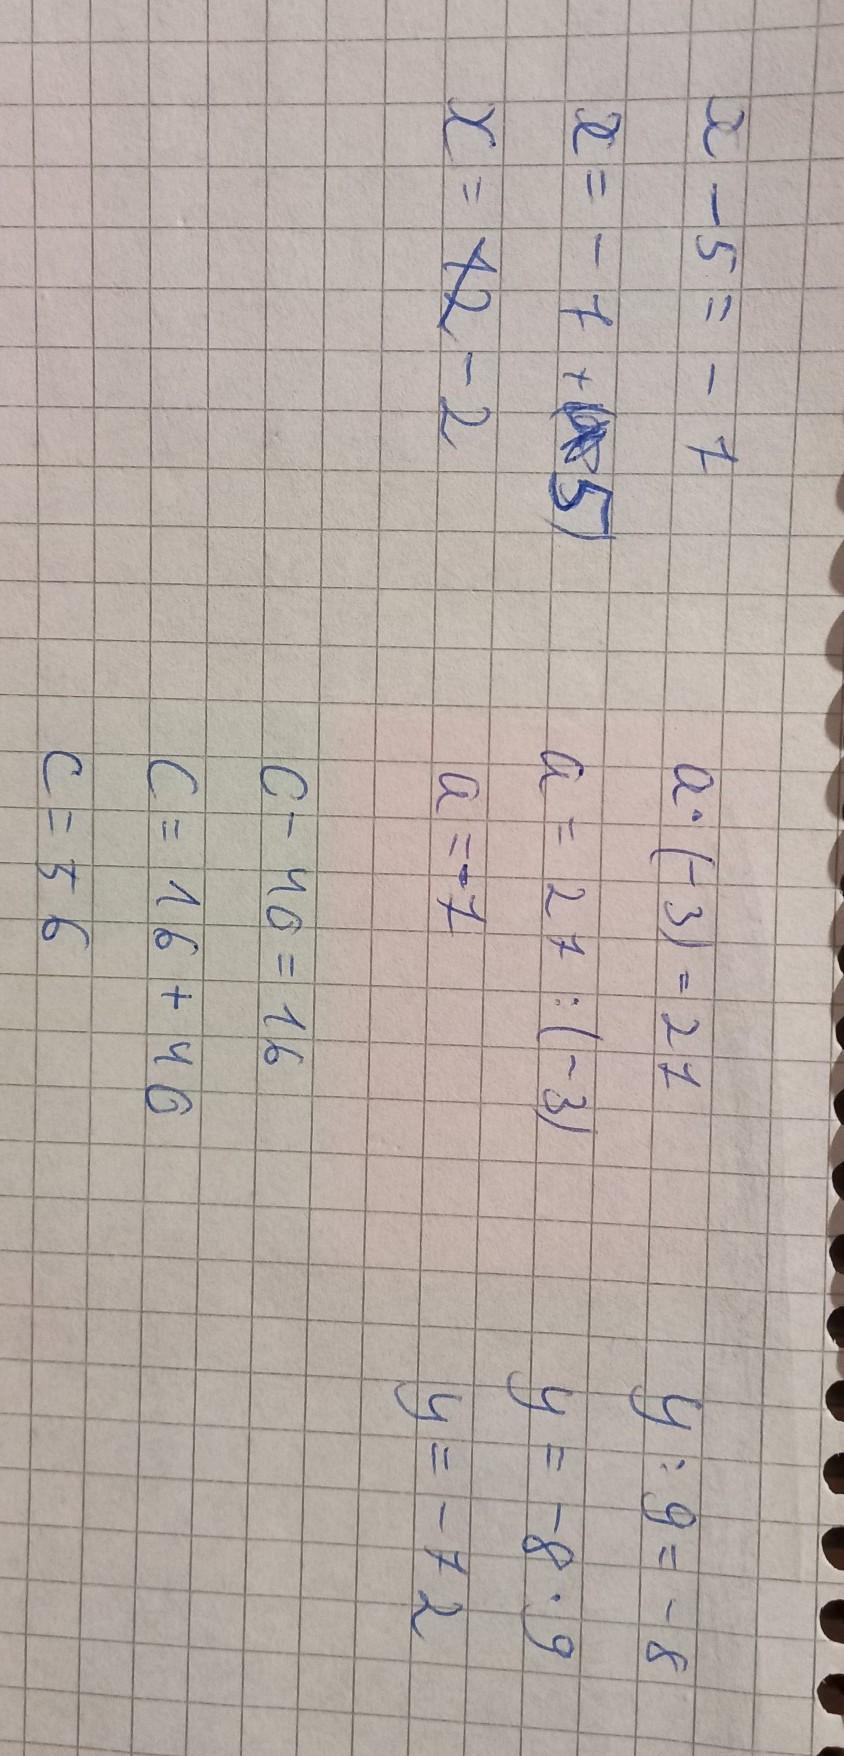 x - 5 = - 7
x = - 7 + (5)
x = - 2
a · (-3) = 27
a = 27 : (-3)
a = -7
c - 40 = 16
c = 16 + 40
c = 56
y : 9 = -8
y = -8 · 9
y = -72